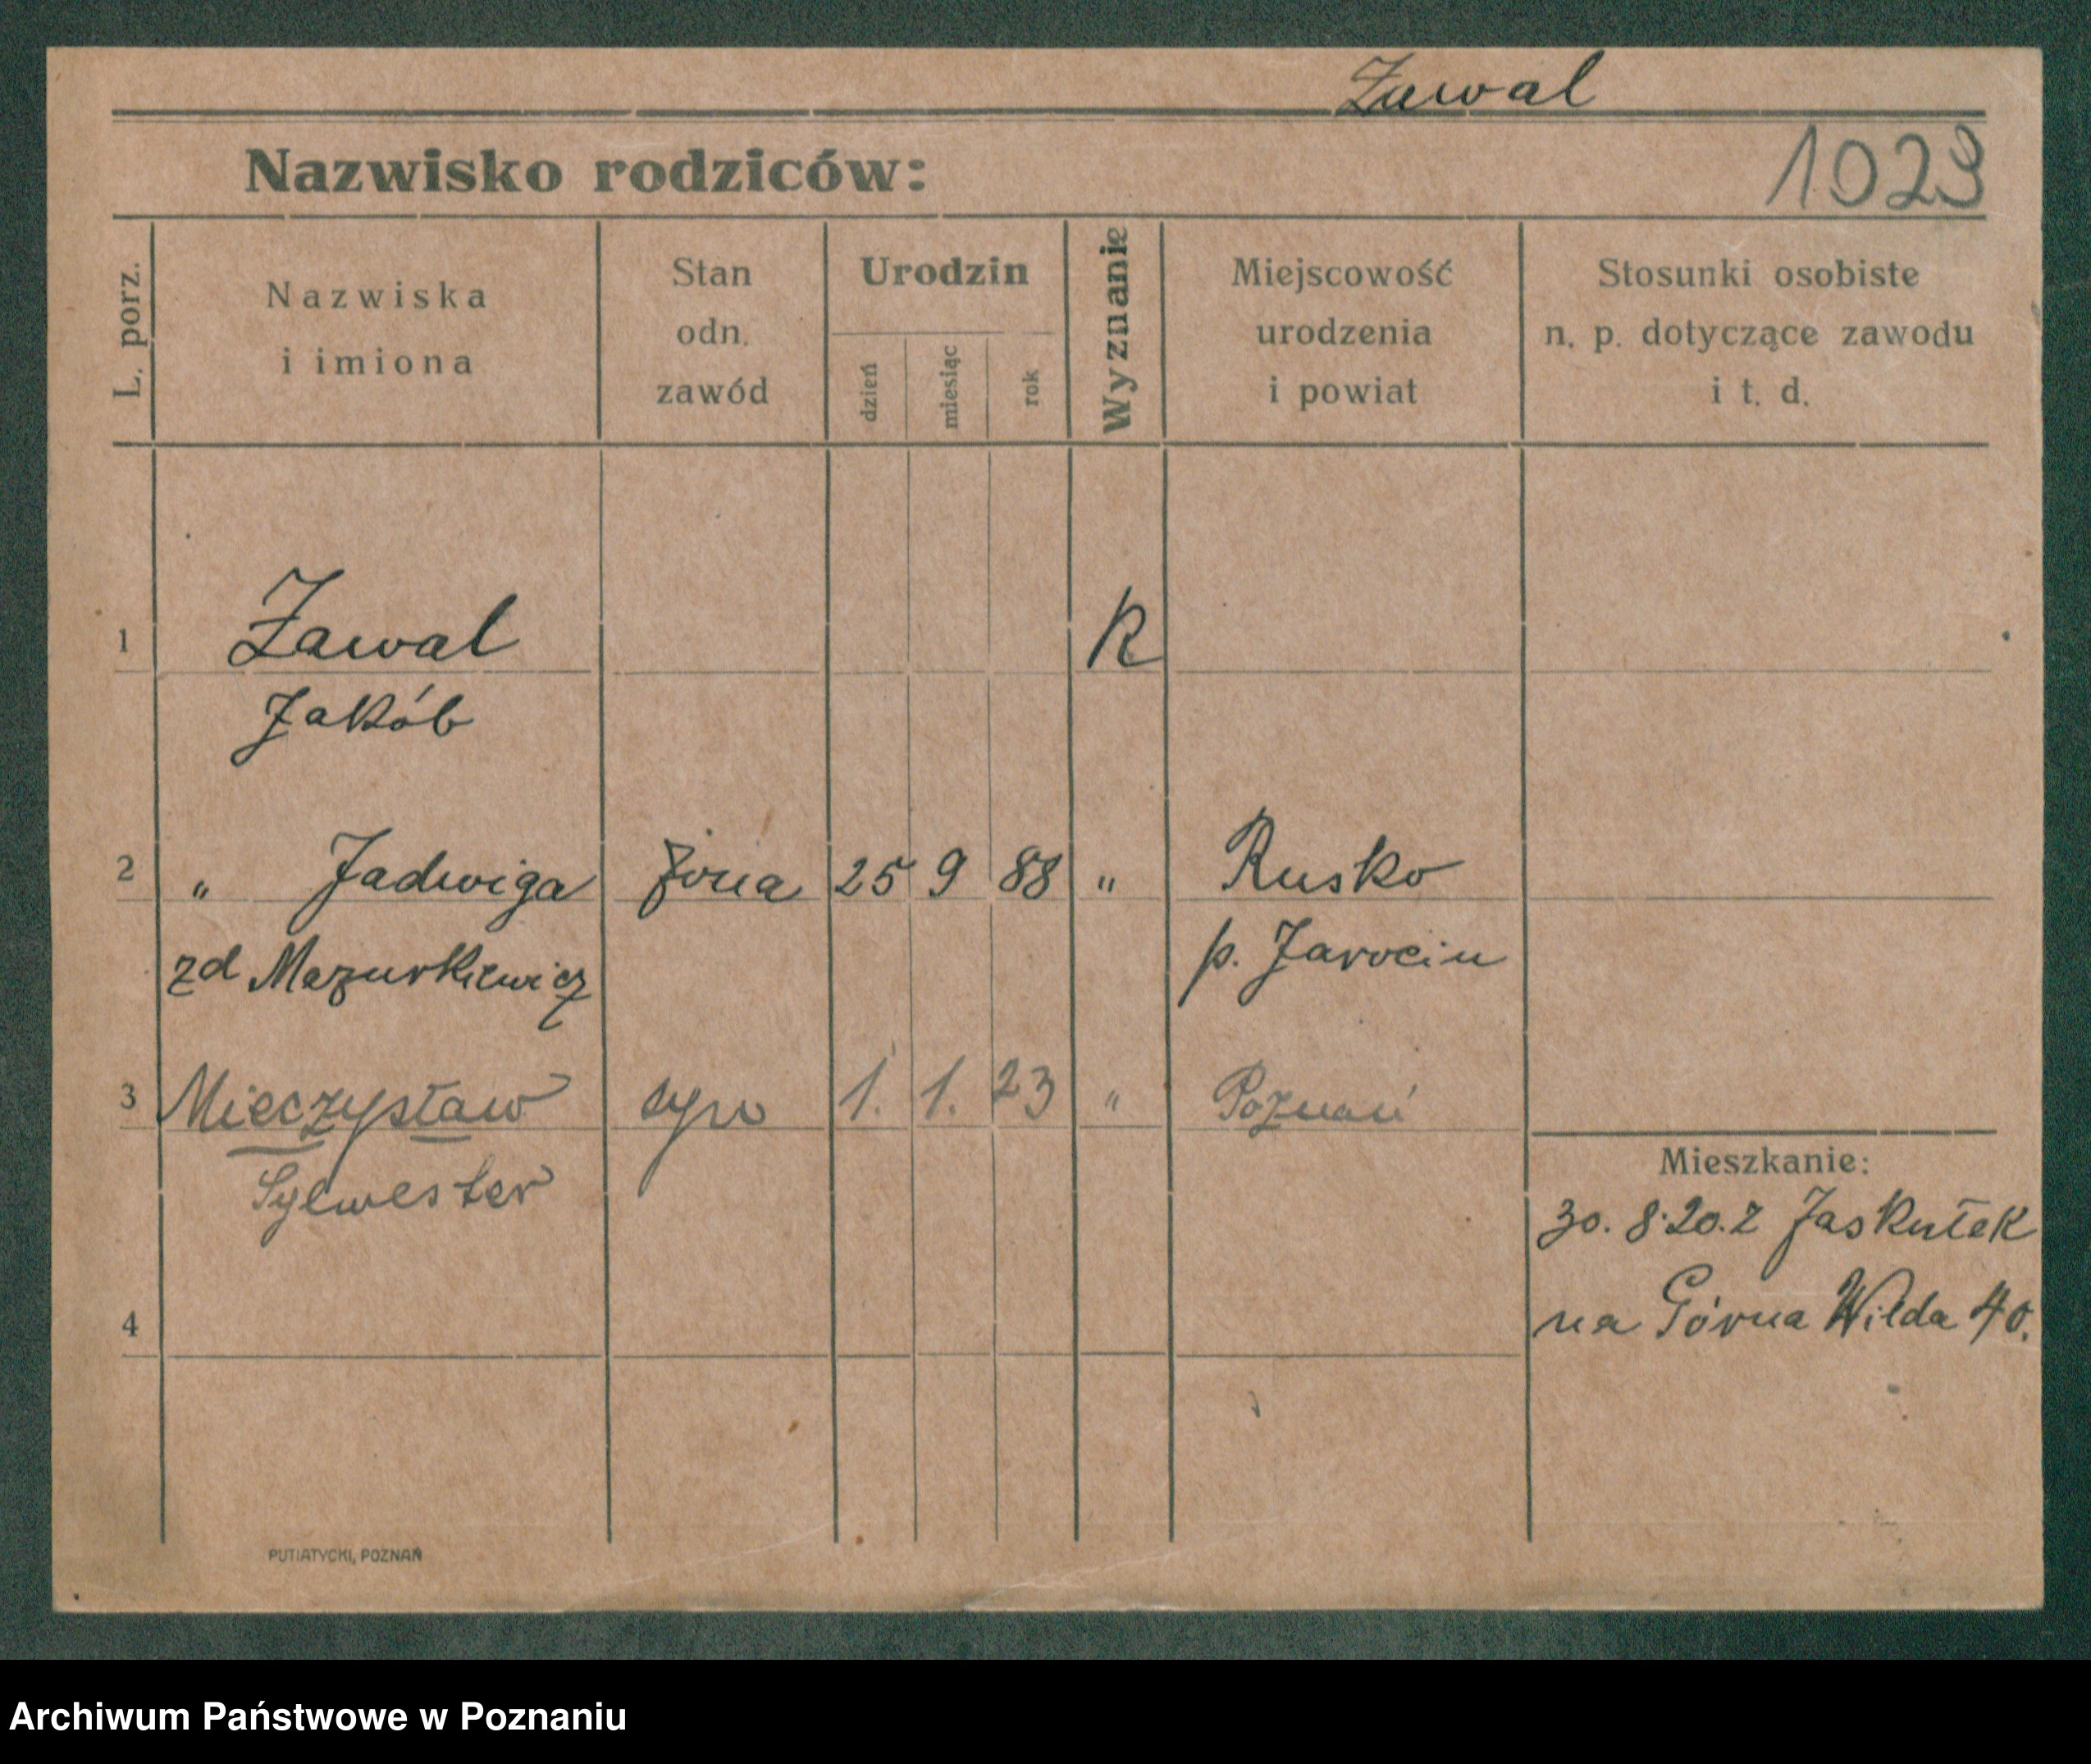 Zawal
Nazwisko rodziców:
1023
L. porz.
Nazwiska
i imiona
Stan
odn.
zawód
Urodzin
dzień
miesiąc
rok
Wyznanie
Miejscowość
urodzenia
i powiat
Stosunki osobiste
n. p. dotyczące zawodu
i t. d.
1 Zawal R
Jakób
2 " Jadwiga żona 25 9 88 " Rusko
zd Mazurkiewicz p. Jarocin
3 Mieczysław syn 1. 1. 23 " Poznań
Sylwester
Mieszkanie:
30. 8. 20. z Jaskułek
na Górna Wilda 40.
4
PUTIATYCKI, POZNAŃ
Archiwum Państwowe w Poznaniu